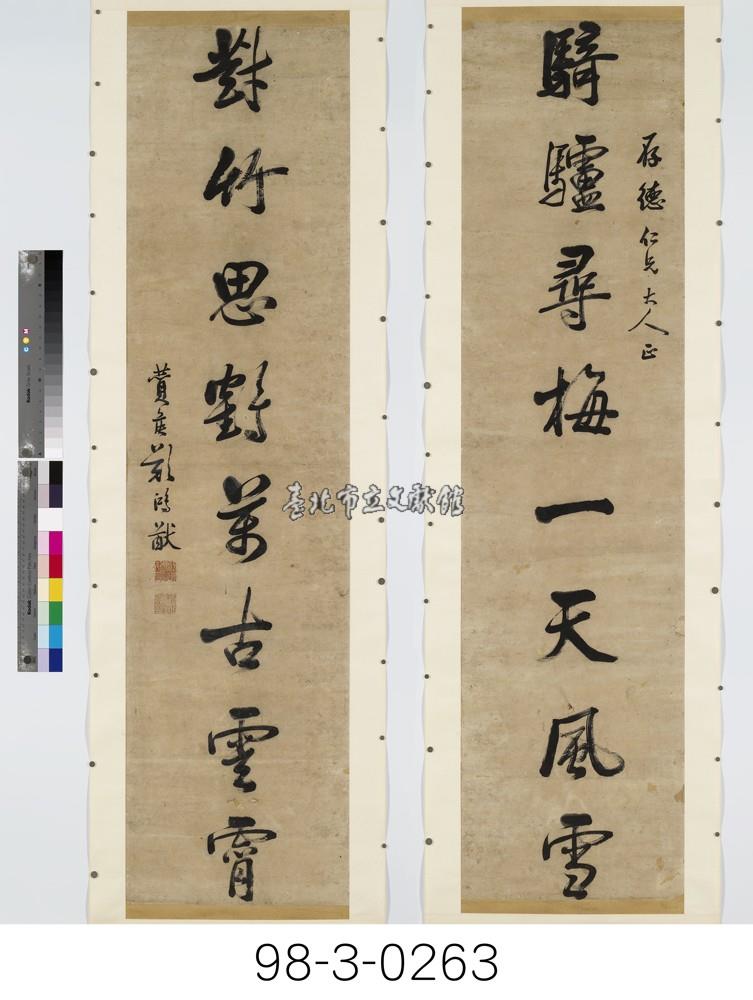 存德仁兄大人正
騎驢尋梅一天風雪
對竹思鶴萬古雲霄
鄭鴻猷
臺北市立文獻館
98-3-0263